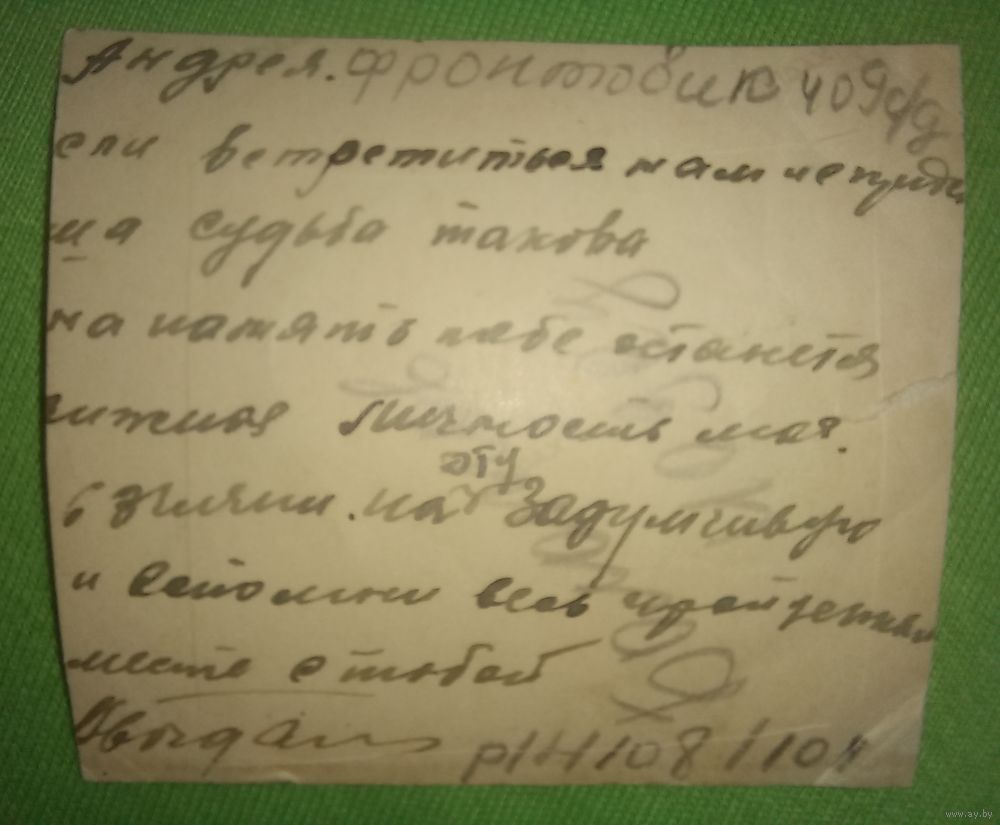 Андрея. фронтовик 409
сли встретиться нам не приде
ша судьба такова
на память тебе останется
вижная личность моя.
взгляни. на эту задумчивую
и вспомни весь пройденный
месте с тобой
www.ay.by